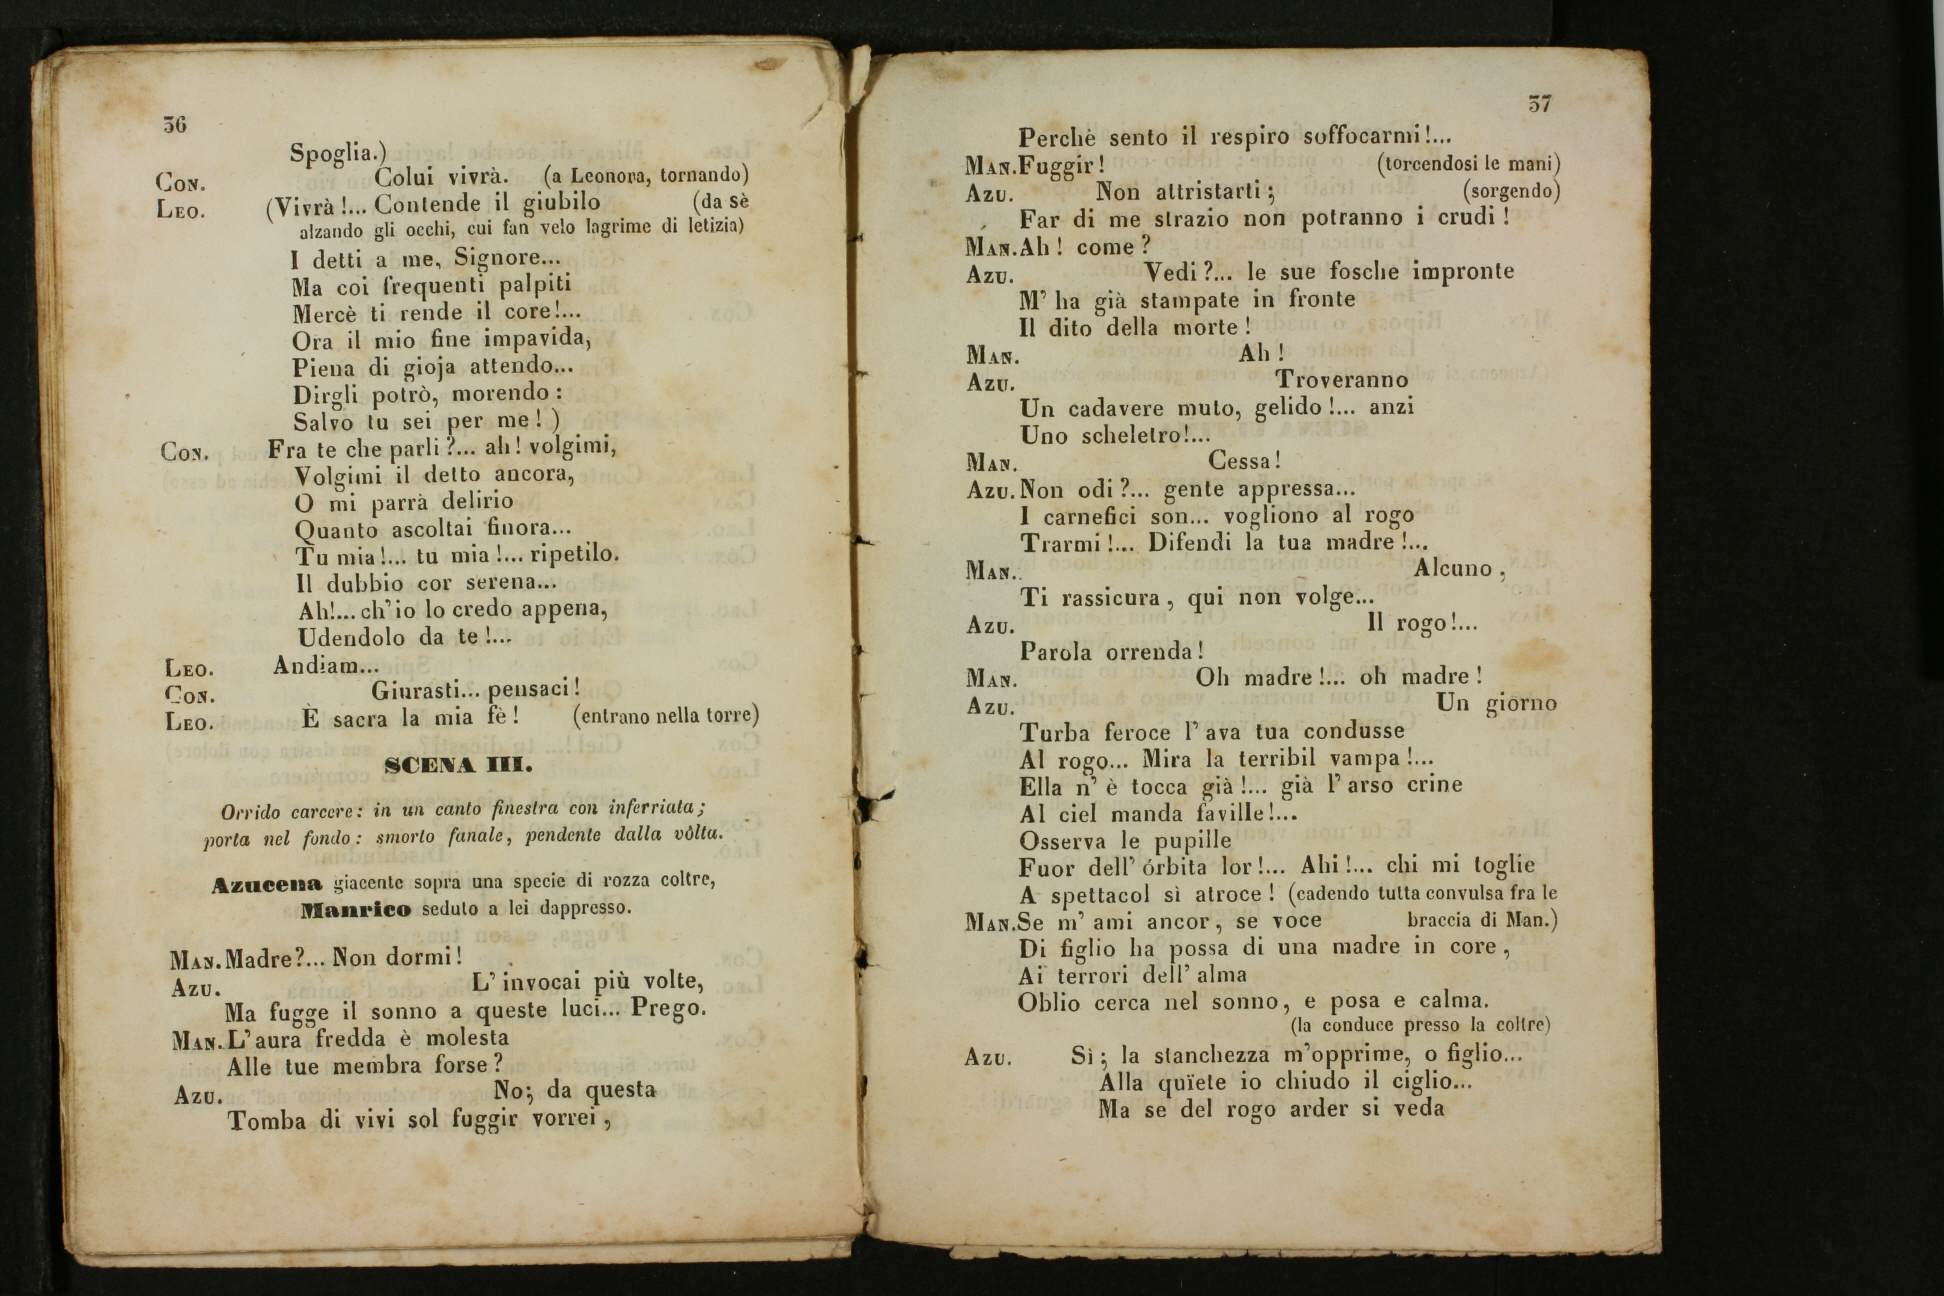 36
Spoglia.)
Con. Colui vivrà. (a Leonora, tornando)
Leo. (Vivrà!... Contende il giubilo (da sè
alzando gli occhi, cui fan velo lagrime di letizia)
I detti a me, Signore...
Ma coi frequenti palpiti
Mercè ti rende il core!...
Ora il mio fine impavida,
Piena di gioja attendo...
Dirgli potrò, morendo:
Salvo tu sei per me!)
Con. Fra te che parli?... ah! volgimi,
Volgimi il detto ancora,
O mi parrà delirio
Quanto ascoltai finora...
Tu mia!... tu mia!... ripetilo.
Il dubbio cor serena...
Ah!... ch'io lo credo appena,
Udendolo da te!...
Leo. Andiam...
Con. Giurasti... pensaci!
Leo. È sacra la mia fè! (entrano nella torre)
SCENA III.
Orrido carcere: in un canto finestra con inferriata;
porta nel fondo: smorto fanale, pendente dalla vôlta.
Azucena giacente sopra una specie di rozza coltre,
Manrico seduto a lei dappresso.
Man. Madre?... Non dormi!
Azu. L'invocai più volte,
Ma fugge il sonno a queste luci... Prego.
Man. L'aura fredda è molesta
Alle tue membra forse?
Azu. No; da questa
Tomba di vivi sol fuggir vorrei,
37
Perchè sento il respiro soffocarmi!...
Man. Fuggir! (torcendosi le mani)
Azu. Non attristarti; (sorgendo)
Far di me strazio non potranno i crudi!
Man. Ah! come?
Azu. Vedi?... le sue fosche impronte
M'ha già stampate in fronte
Il dito della morte!
Man. Ah!
Azu. Troveranno
Un cadavere muto, gelido!... anzi
Uno scheletro!...
Man. Cessa!
Azu. Non odi?... gente appressa...
I carnefici son... vogliono al rogo
Trarmi!... Difendi la tua madre!...
Man. Alcuno,
Ti rassicura, qui non volge...
Azu. Il rogo!...
Parola orrenda!
Man. Oh madre!... oh madre!
Azu. Un giorno
Turba feroce l'ava tua condusse
Al rogo... Mira la terribil vampa!...
Ella n'è tocca già!... già l'arso crine
Al ciel manda faville!...
Osserva le pupille
Fuor dell'órbita lor!... Ahi!... chi mi toglie
A spettacol sì atroce! (cadendo tutta convulsa fra le
Man. Se m'ami ancor, se voce braccia di Man.)
Di figlio ha possa di una madre in core,
Ai terrori dell'alma
Oblio cerca nel sonno, e posa e calma.
(la conduce presso la coltre)
Azu. Sì; la stanchezza m'opprime, o figlio...
Alla quïete io chiudo il ciglio...
Ma se del rogo arder si veda